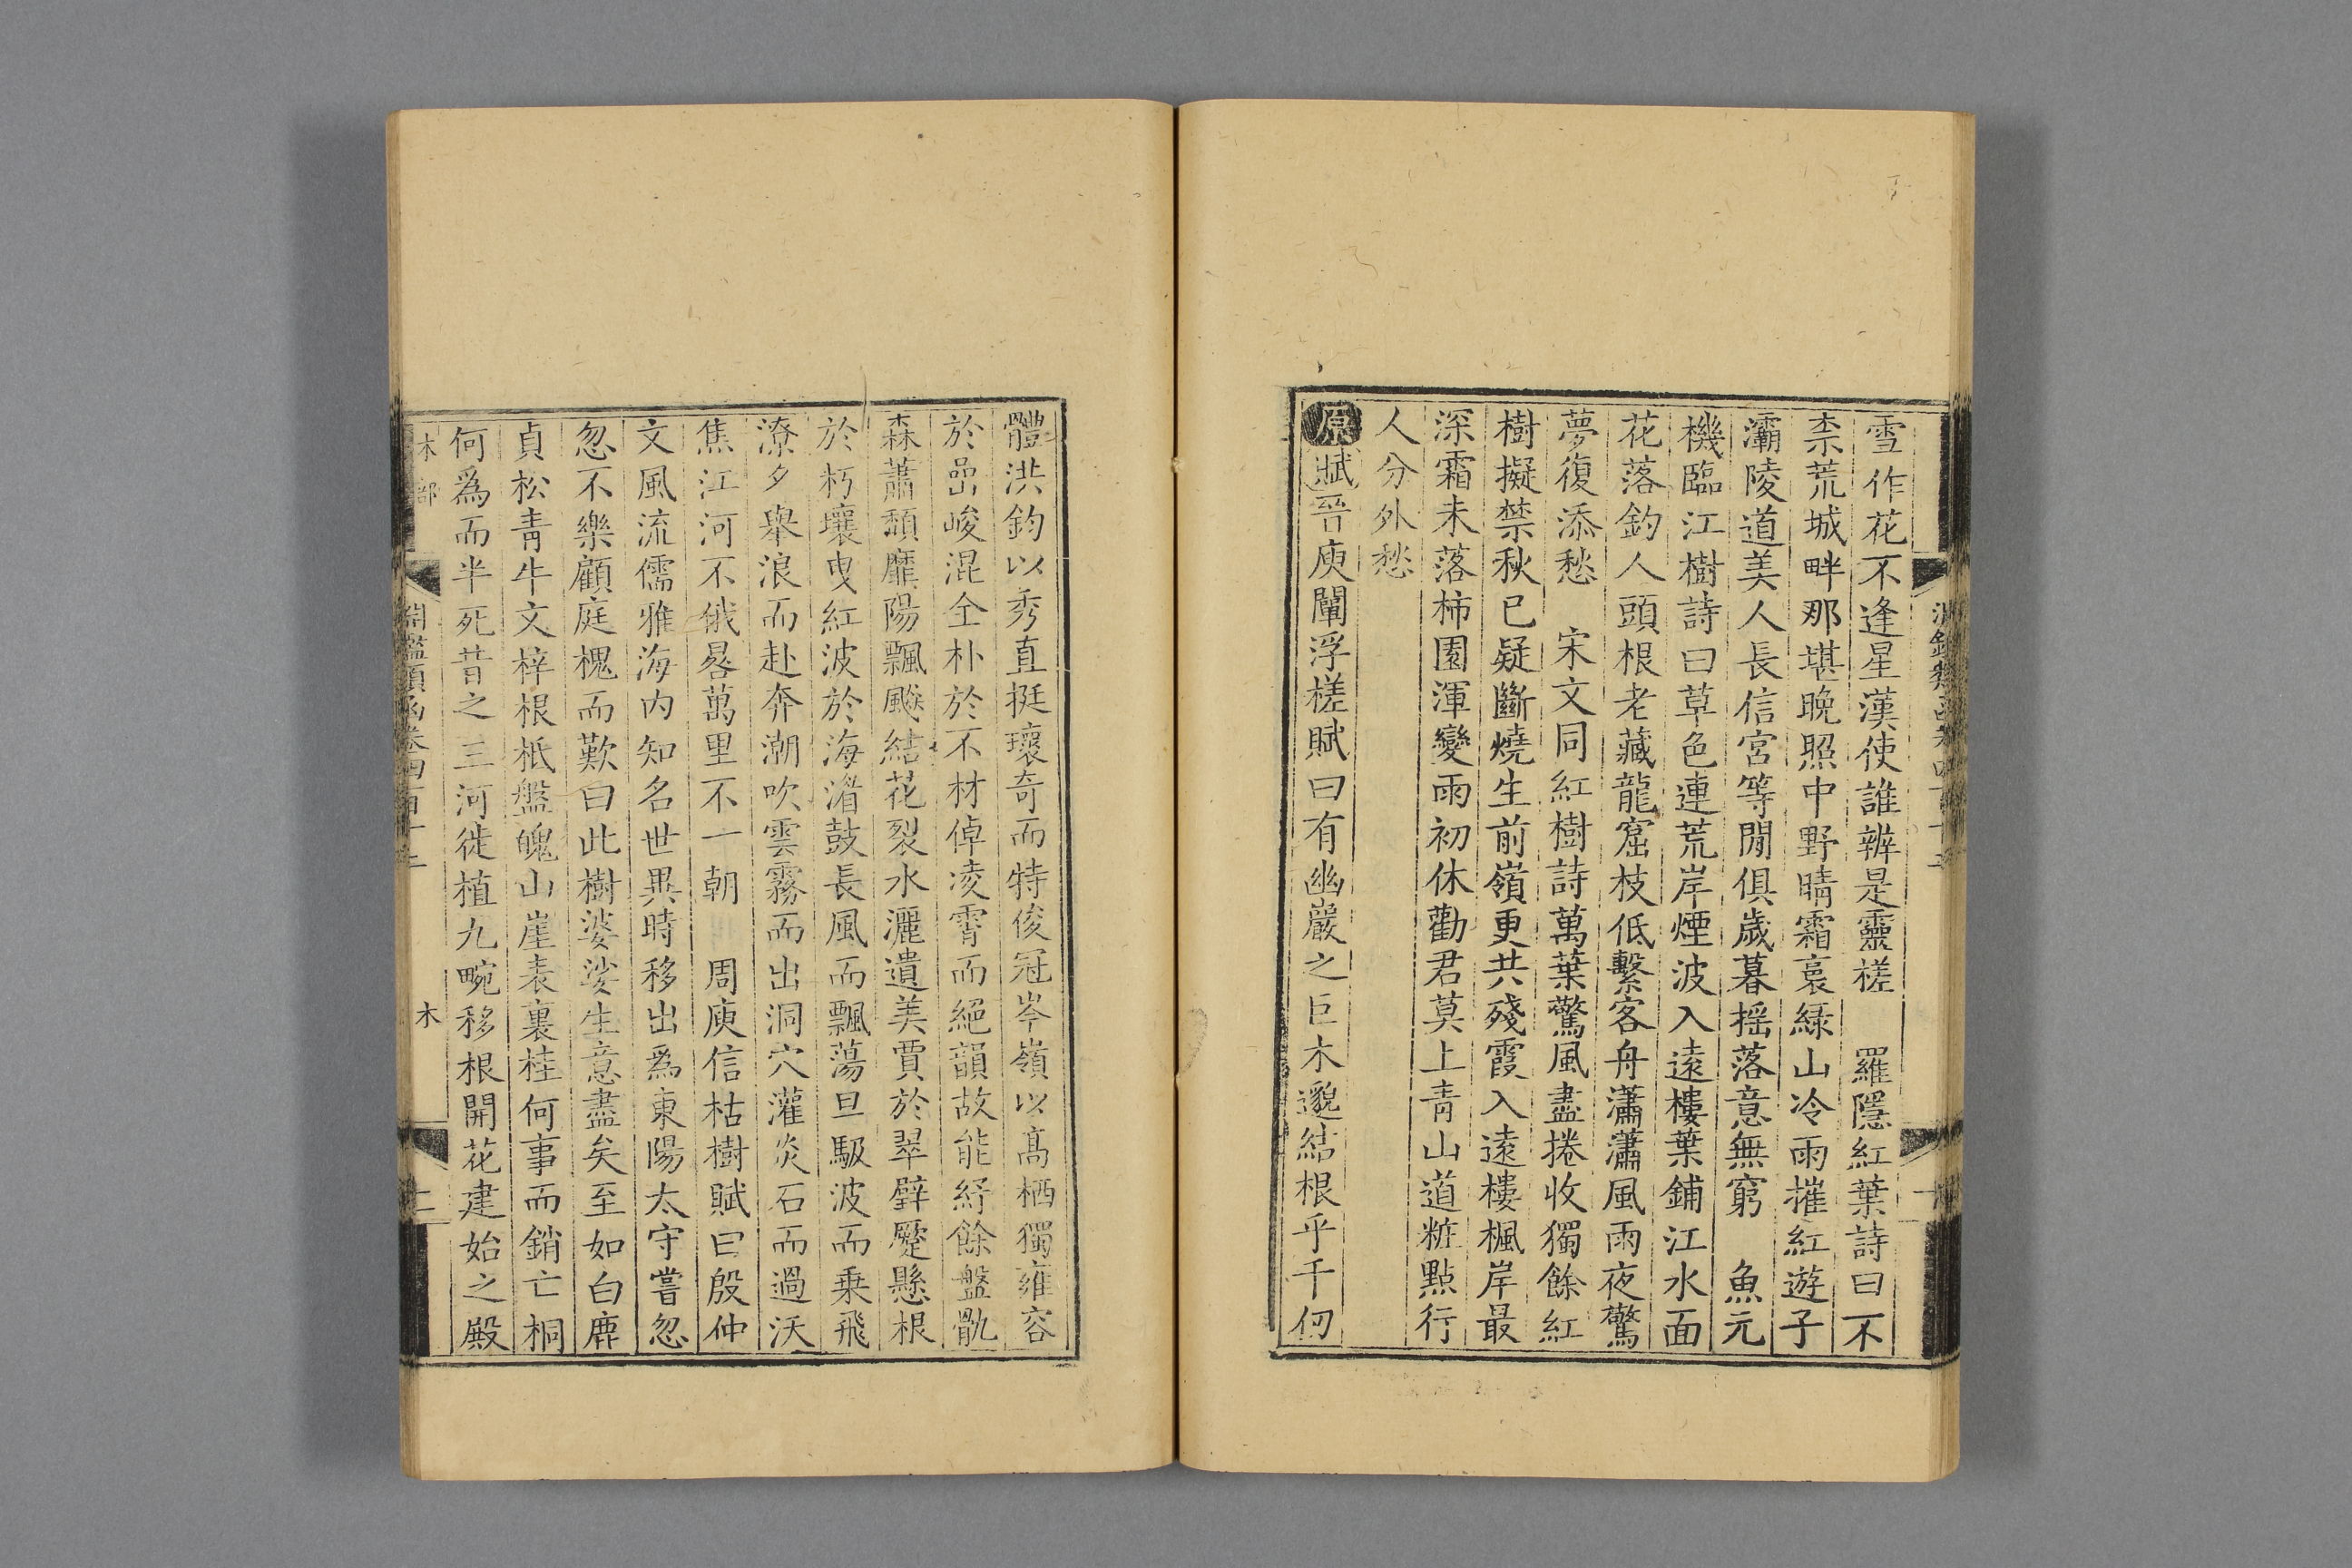 雪作花不逢星漢使誰辨是靈槎　羅隱紅葉詩曰不
柰荒城畔那堪晩照中野晴霜裛綠山冷雨摧紅遊子
灞陵道美人長信宮等閒俱歲暮揺落意無窮　魚元
機臨江樹詩曰草色連荒岸煙波入遠樓葉鋪江水面
花落釣人頭根老藏龍窟枝低繫客舟瀟瀟風雨夜驚
夢復添愁　宋文同紅樹詩萬葉驚風盡捲收獨餘紅
樹擬禁秋已疑斷燒生前嶺更共殘霞入遠樓楓岸最
深霜未落柿園渾變雨初休勸君莫上青山道粧點行
人分外愁
原賦晉庾闡浮槎賦曰有幽巖之巨木邈結根乎千仞
體洪鈞以秀直挺瓌奇而特俊冠岑嶺以髙栖獨雍容
於嵒峻混全朴於不材倬凌霄而絕韻故能紓餘盤骩
森蕭頽靡陽飄飈結花裂水灑遺美賈於翠壁蹙懸根
於朽壤曳紅波於海渚鼓長風而飄蕩旦馺波而乗飛
潦夕舉浪而赴奔潮吹雲霧而出洞穴灌炎石而過沃
焦江河不俄晷萬里不一朝　周庾信枯樹賦曰殷仲
文風流儒雅海内知名世異時移出爲東陽太守嘗忽
忽不樂顧庭槐而歎曰此樹婆娑生意盡矣至如白鹿
貞松青牛文梓根柢盤魄山崖表裏桂何事而銷亡桐
何爲而半死昔之三河徙植九畹移根開花建始之殿
木部
淵鑑類函卷四百十三
木